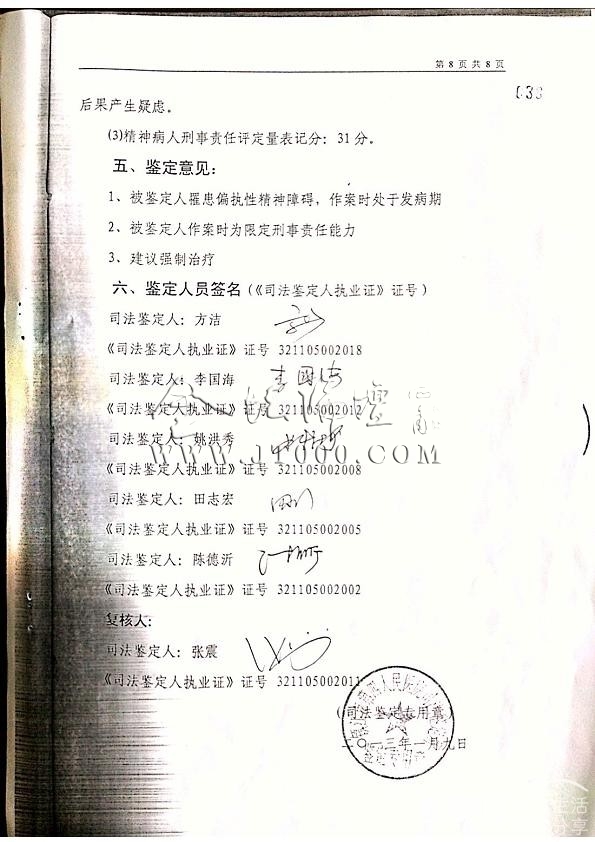 第 8 页 共 8 页
后果产生疑虑。
(3)精神病人刑事责任评定量表记分：31 分。
五、鉴定意见：
1、被鉴定人罹患偏执性精神障碍，作案时处于发病期
2、被鉴定人作案时为限定刑事责任能力
3、建议强制治疗
六、鉴定人员签名（《司法鉴定人执业证》证号）
司法鉴定人：方洁
《司法鉴定人执业证》证号 321105002018
司法鉴定人：李国海 李国海
《司法鉴定人执业证》证号 321105002012
司法鉴定人：姚洪秀
WWW.JT000.COM
《司法鉴定人执业证》证号 321105002008
司法鉴定人：田志宏
《司法鉴定人执业证》证号 321105002005
司法鉴定人：陈德沂
《司法鉴定人执业证》证号 321105002002
复核人：
司法鉴定人：张震
《司法鉴定人执业证》证号 321105002011
（司法鉴定专用章）
二〇一三年一月九日